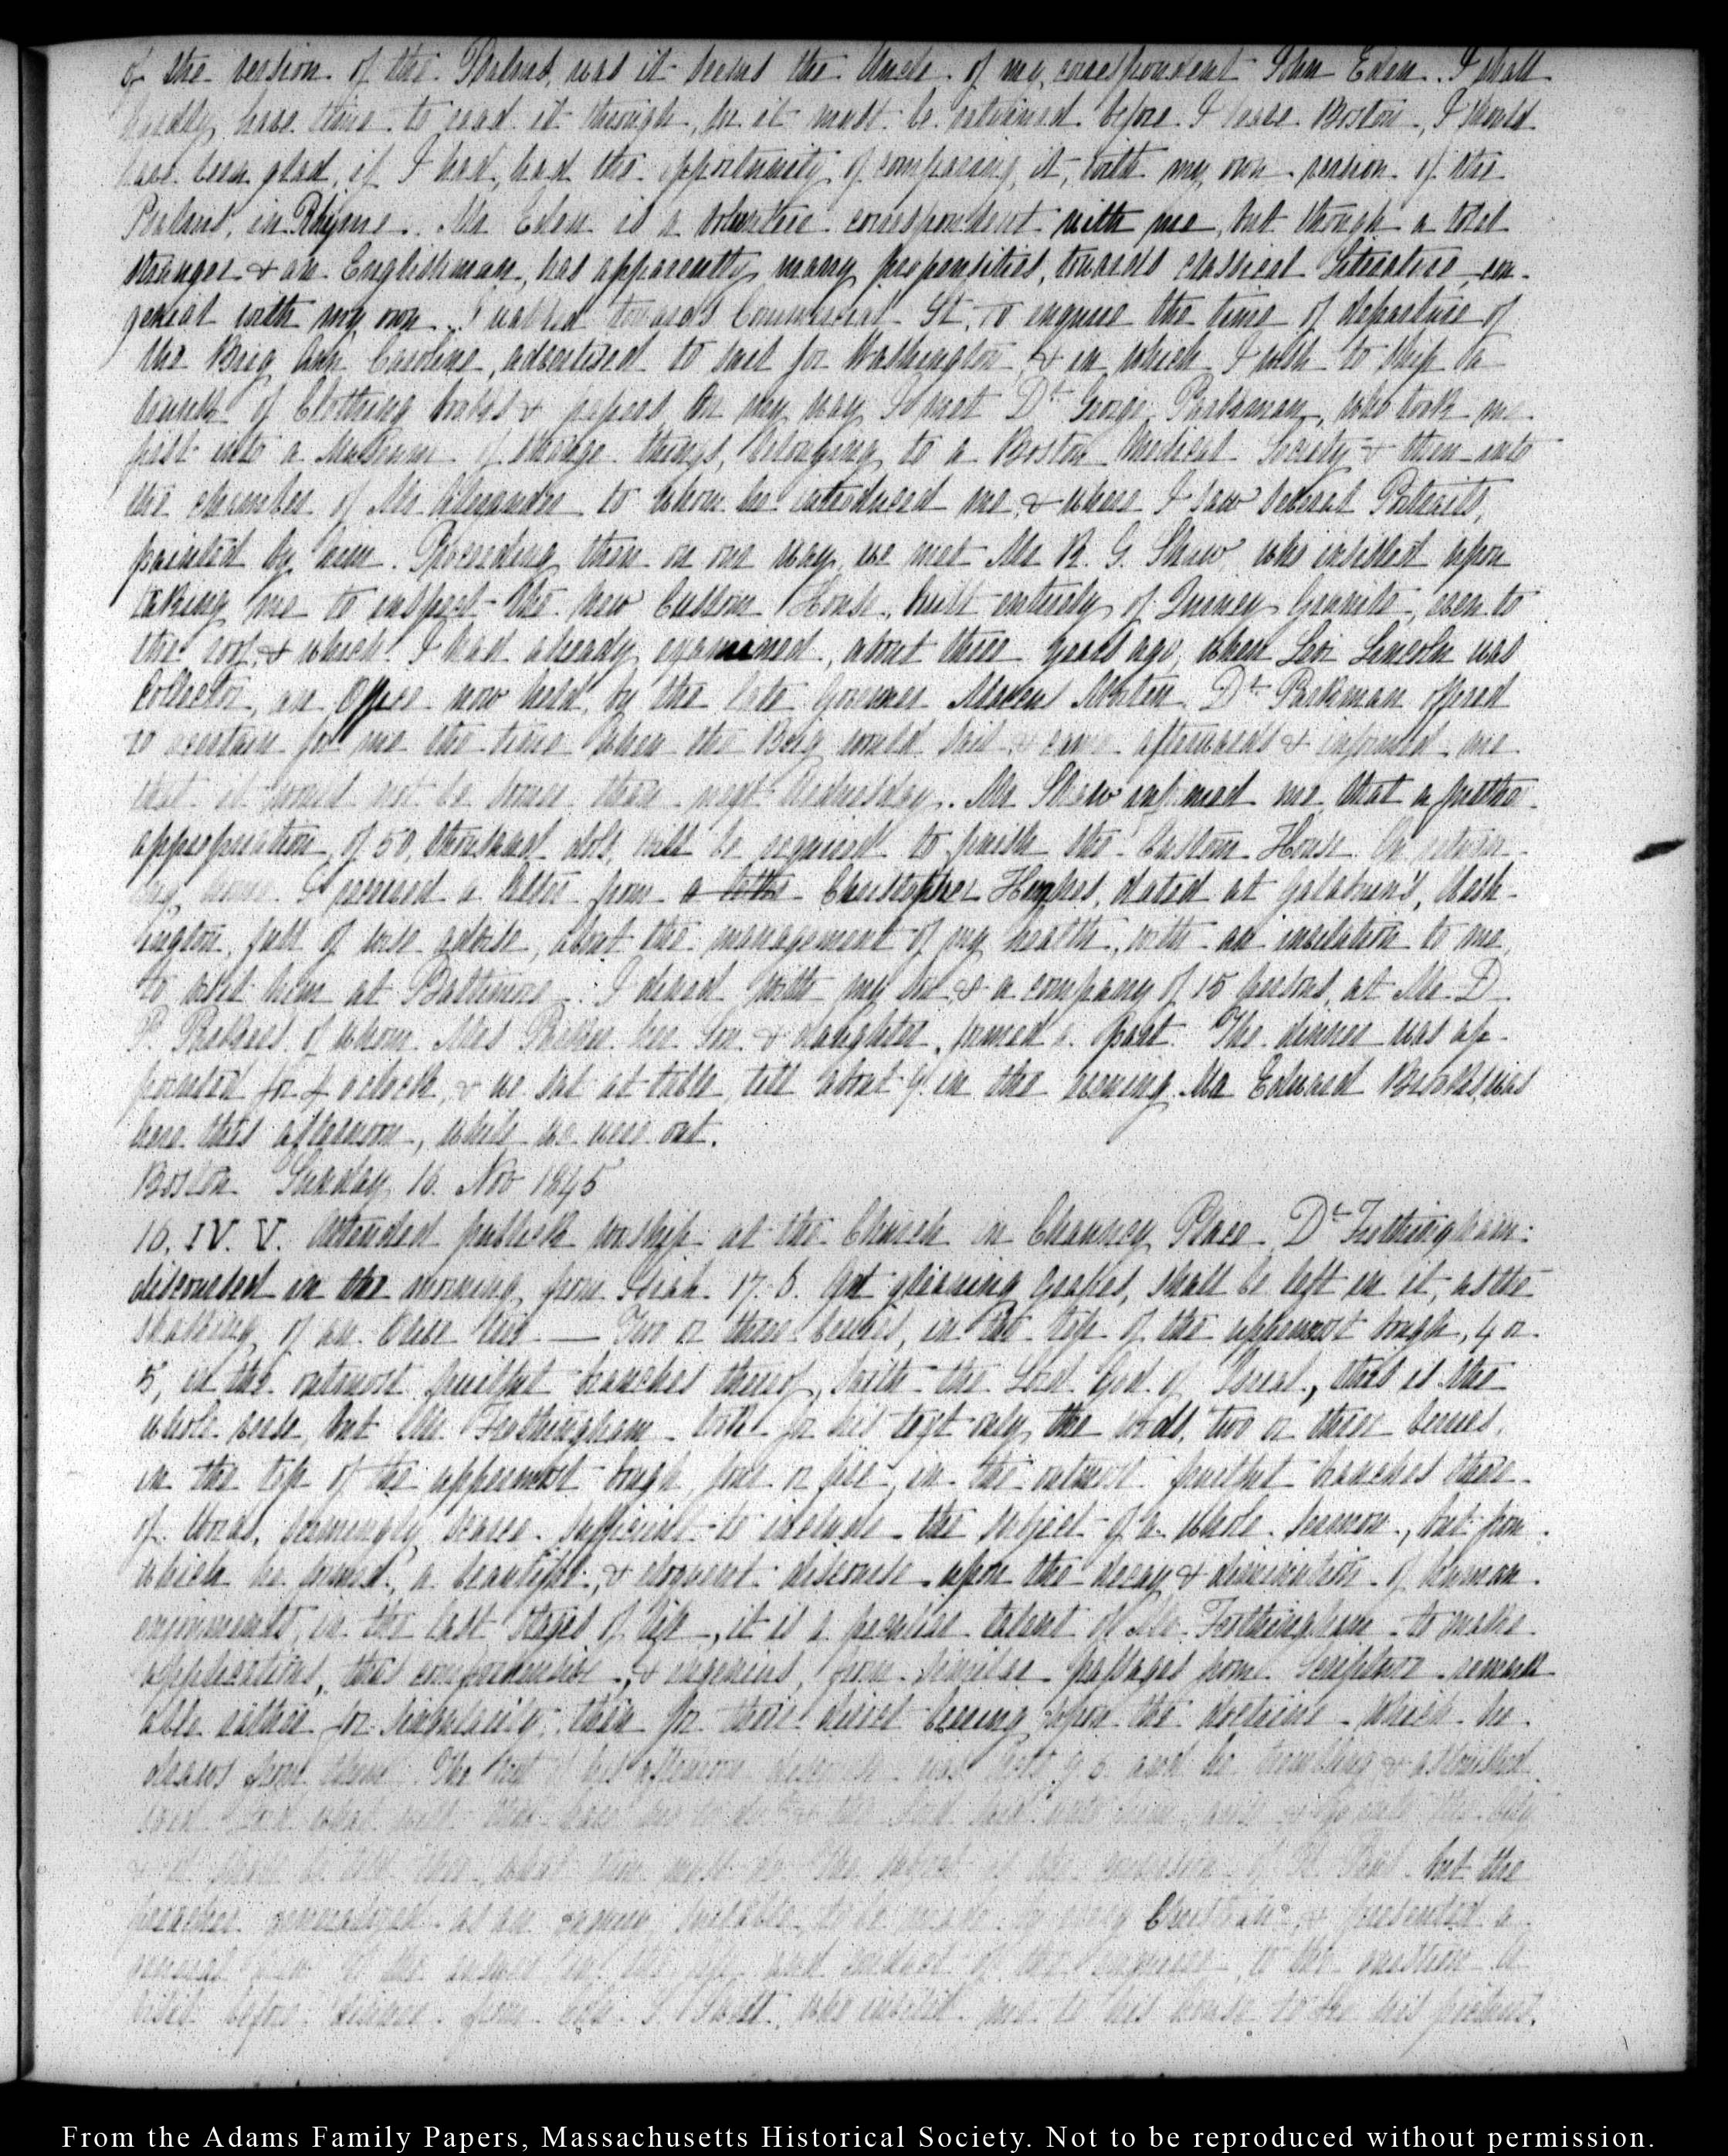 of the version of the Psalms, was it seems the Uncle of my correspondent John Eden. I shall
hardly have time to read it through, for it must be returned before I leave Boston, I should
have been glad, if I had, had the opportunity of comparing it, with my own version of the
Psalms, in Rhyme. Mr Eden is a volunteer correspondent with me, but though a total
stranger & an Englishman, has apparently many propensities, towards classical Literature, con-
genial with my own. I walked towards Commercial St. to enquire the time of departure of
the Brig Ann Caroline, advertised to sail for Washington, & in which I wish to ship a
trunk of Clothing books & papers. On my way I met Dr. George Parkman, who took me
first into a Museum of strange things, belonging to a Boston Medical Society & then into
the chamber of Mr Alexander to whom he introduced me, & where I saw several Portraits,
painted by him. Proceeding then on our way, we met Mr R. G. Shaw, who insisted upon
taking me to inspect the new Custom House, built entirely of Quincy Granite, even to
the roof, & which I had already examined, about three years ago, when Levi Lincoln was
Collector, an Office now held, by the late Governor Marcus Morton. Dr. Parkman offered
to ascertain for me the time when the Brig would sail, & came afterwards & informed me
that it would not be sooner than next Wednesday. Mr Shaw informed me that a further
appropriation, of 50, thousand dols, will be required to finish the Custom House. On return-
ing home I received a letter from a letter Christopher Hughes, dated at Gadsby's, Wash-
ington, full of wise advise, about the management of my health, with an invitation to me,
to visit him at Baltimore. I dined with my son & a company of 15 persons, at Mr. D
P. Parkers of whom Mrs Parker her Son & daughter, formed a part. The dinner was ap-
pointed for 4 oclock, & we sat at table till about 7 in the evening. Mr Edward Brooks, was
here this afternoon, while we were out.
Boston Sunday 16. Nov 1845
16. IV. V. Attended publick worship at the Church in Chauncy Place Dr. Frothingham:
discoursed in the morning, from Isiah. 17. 6. Yet gleaning grapes, shall be left in it, as the
shaking of an Olive tree — Two or three berries, in the top of the uppermost bough, 4 or
5, in the outmost fruitful branches thereof, saith the Lord God of Israel, this is the
whole verse, but Mr Frothingham took for his text only the words, two or three berries,
in the top of the uppermost bough, four or five, in the outmost fruitful branches there-
of. Words, seemingly scarce sufficient to include the subject of a whole sermon, but from
which he formed, a beautiful, & eloquent discourse upon the decay & diminution of human
enjoyments, in the last stages of life, it is a peculiar talent of Mr. Frothingham to make
applications, thus comprehensive, & ingenius, from similar passages from Scripture remark
able rather for singularity, than for their direct bearing upon the doctrine which he
draws from them. The text of his afternoon discourse was Acts 9. 6. and he trembling & astonished
said Lord what wilt thou have me to do & the Lord said unto him, arise & go into the city
& it shall be told thee, what thou must do The subject is the conversion of St. Paul but the
preacher generalized as an enquiry suitable to be made by every Christian, & presented a
general view of the answer in the life and conduct of the enquirer, to the question A
visit before dinner from who invited me to his house to see his pictures.